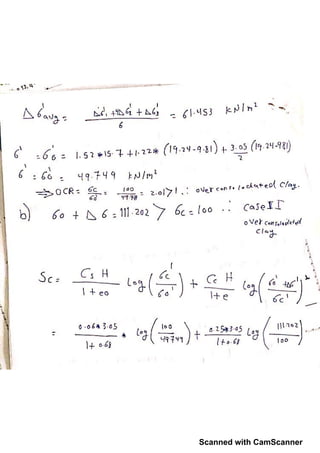 Δ6avg = (Δ6₁' + 4Δ6₂' + Δ6₃') / 6 = 61.453 kN/m²
6' = 6o' = 1.52 * 15.7 + 1.22 * (19.24 - 9.81) + 3.05/2 (19.24 - 9.81)
6' = 6o' = 49.749 kN/m²
⇒ OCR = 6c'/6o' = 100/49.78 = 2.01 > 1 ∴ over consolidated clay.
b) 6o + Δ6 = 111.202 > 6c = 100 ∴ Case II
over consolidated
clay
Sc = Cs H / (1 + eo) Log (6c' / 6o') + Cc H / (1 + e) Log (6o' + Δ6' / 6c')
= 0.06 * 3.05 / (1 + 0.68) * log (100 / 49.749) + 0.25 * 3.05 / (1 + 0.68) log (111.202 / 100)
Scanned with CamScanner